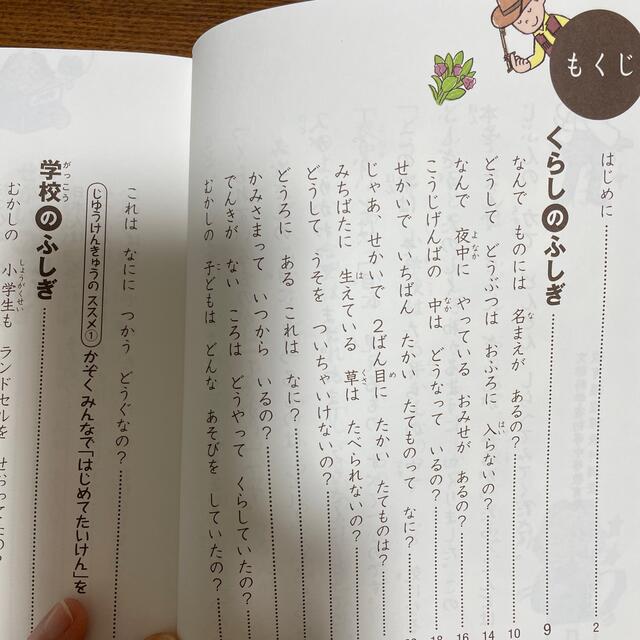 もくじ
はじめに 2
くらしのふしぎ 9
なんで ものには 名まえが あるの? 10
どうして どうぶつは おふろに 入らないの? 14
なんで 夜中に やっている おみせが あるの? 16
こうじげんばの 中は どうなって いるの? 18
せかいで いちばん たかい たてものって なに?
じゃあ、せかいで 2ばん目に たかい たてものは?
みちばたに 生えている 草は たべられないの?
どうして うそを ついちゃいけないの?
どうろに ある これは なに?
かみさまって いつから いるの?
でんきが ない ころは どうやって くらしていたの?
むかしの 子どもは どんな あそびを していたの?
これは なにに つかう どうぐなの?
じゆうけんきゅうの ススメ① かぞく みんなで「はじめてたいけん」を
学校のふしぎ
むかしの 小学生も ランドセルを せおってたの?